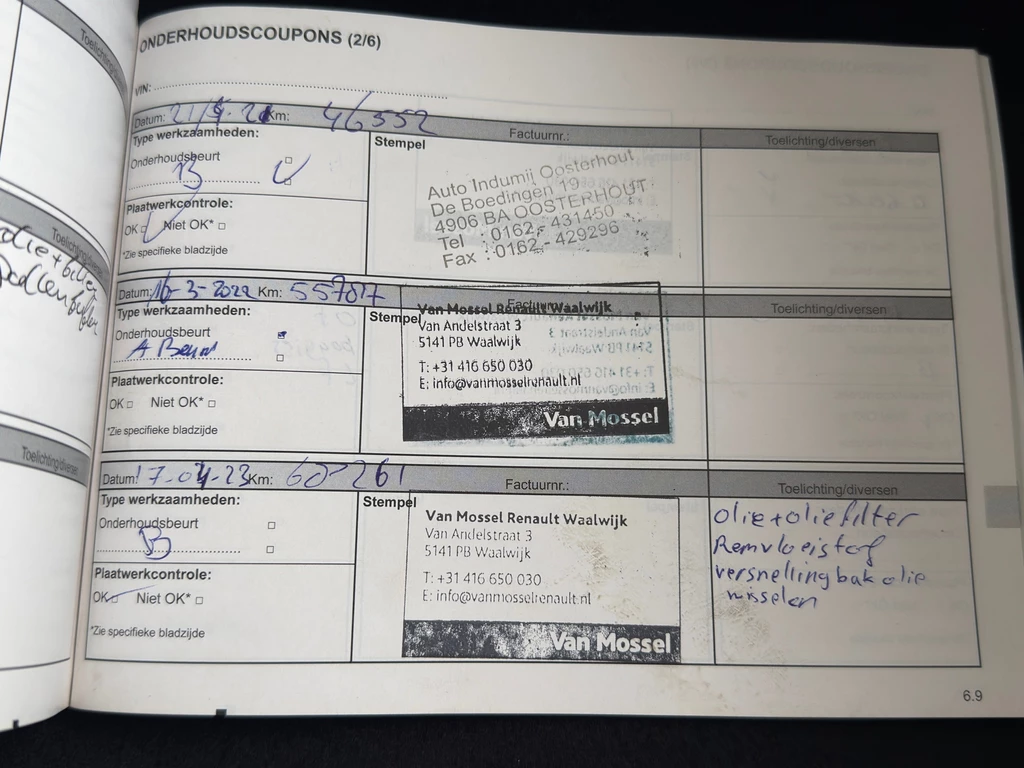 ONDERHOUDSCOUPONS (2/6)
VIN:
Datum: 21/ - 21 Km: 46552
Factuurnr.:
Toelichting/diversen
Type werkzaamheden:
Stempel
Onderhoudsbeurt
B
Plaatwerkcontrole:
OK □ Niet OK* □
*Zie specifieke bladzijde
Auto Indumij Oosterhout
De Boedingen 19
4906 BA OOSTERHOUT
Tel : 0162 - 431450
Fax : 0162 - 429296
Toelichting/diversen
olie + filter
Datum: 16-3-2022 Km:
Factuurnr.:
Toelichting/diversen
Type werkzaamheden:
Stempel
Onderhoudsbeurt
A Beurt
Plaatwerkcontrole:
OK □ Niet OK* □
*Zie specifieke bladzijde
Van Mossel Renault Waalwijk
Van Andelstraat 3
5141 PB Waalwijk
T: +31 416 650 030
E: info@vanmosselrenault.nl
Van Mossel
Toelichting/diversen
Datum: 17-04-23 Km: 60-261
Factuurnr.:
Toelichting/diversen
Type werkzaamheden:
Stempel
Onderhoudsbeurt
B
Plaatwerkcontrole:
OK □ Niet OK* □
*Zie specifieke bladzijde
Van Mossel Renault Waalwijk
Van Andelstraat 3
5141 PB Waalwijk
T: +31 416 650 030
E: info@vanmosselrenault.nl
Van Mossel
olie + oliefilter
Remvloeistof
versnellingbak olie
wisselen
Toelichting/diversen
6.9